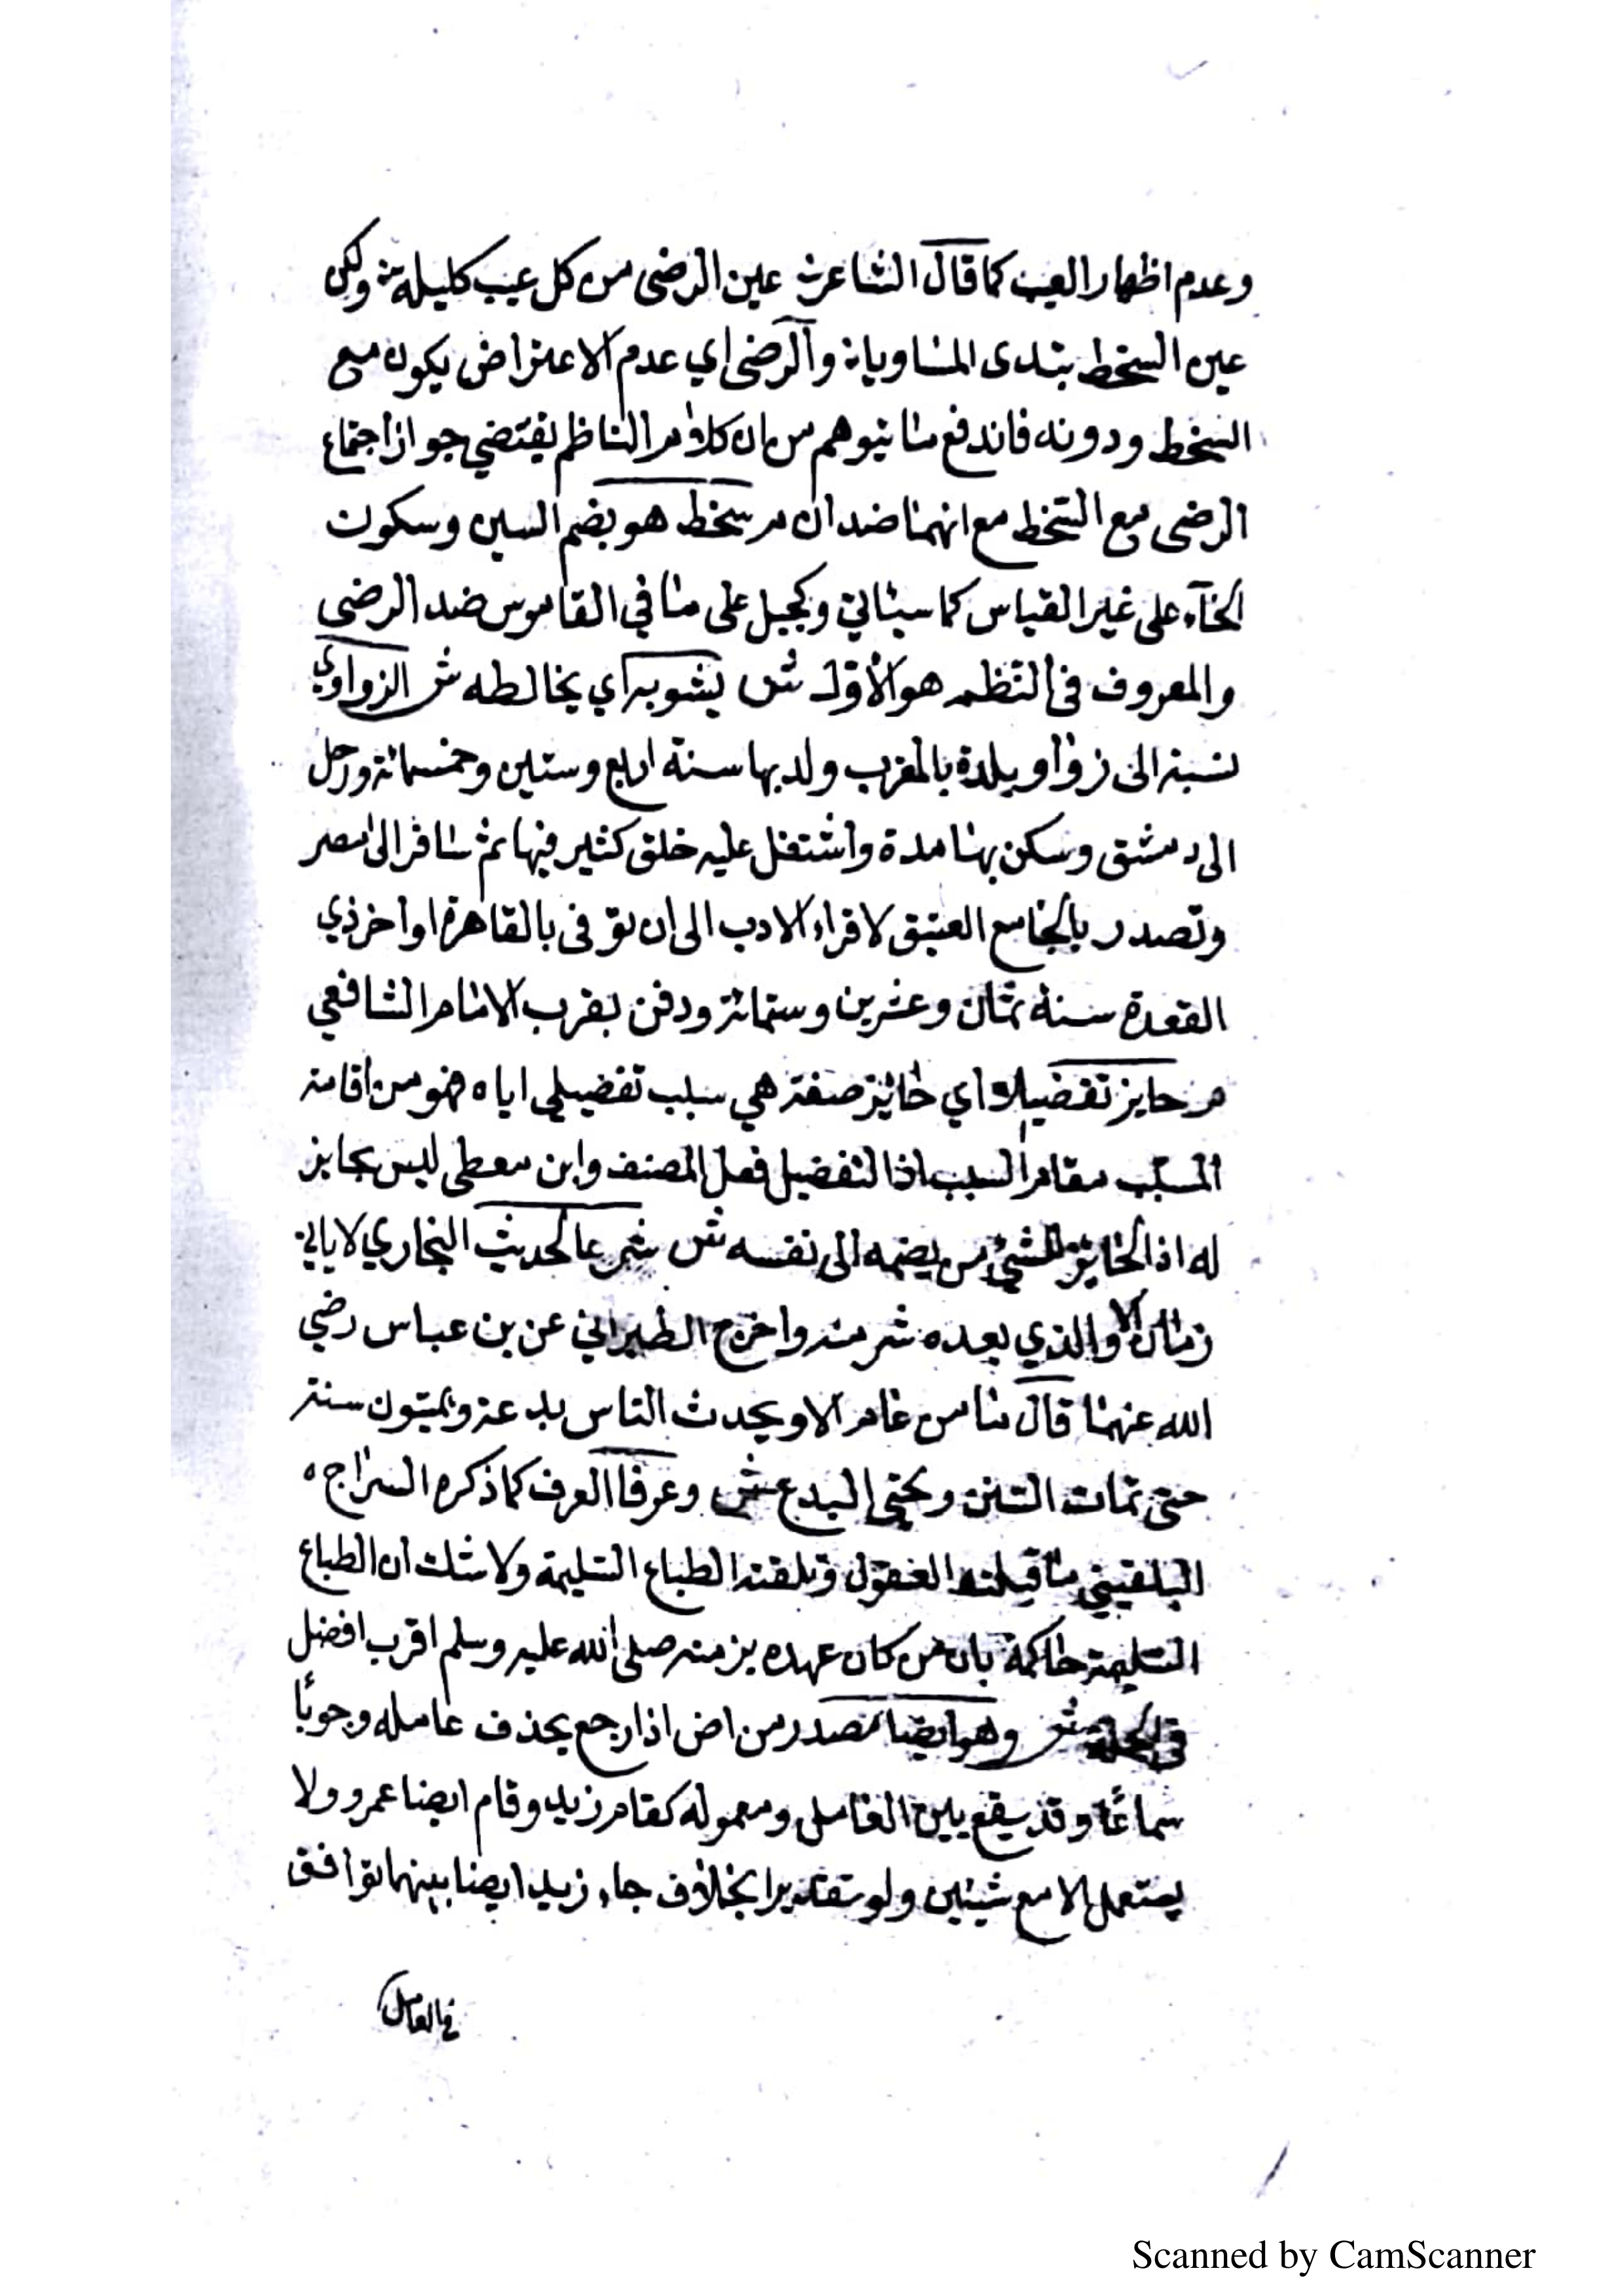 وعدم اظهار العيب كما قال الشاعر عين الرضى من كل عيب كليلة ولكن
عين السخط تبدى المساويا والرضى اي عدم الاعتراض يكون مع
السخط ودونه فاندفع ما يتوهم من ان كلام الناظم يقتضي جواز اجتماع
الرضى مع السخط مع انهما ضدان م سخط هو بضم السين وسكون
الخآء على غير القياس كما سيئاتي وكجبل على ما في القاموس ضد الرضى
والمعروف في النظم هو الأول ش يشوبه اي يخالطه ش الزواوي
نسبة الى زواو بلدة بالمغرب ولد بها سنة اربع وستين وخمسمائة ورحل
الى دمشق وسكن بها مدة واشتغل عليه خلق كثير فيها ثم سافر الى مصر
وتصدر بالجامع العتيق لاقراء الادب الى ان توفى بالقاهرة اواخر ذي
القعدة سنة ثمان وعشرين وستمائة ودفن بقرب الامام الشافعي
م حايز تفضيلا اي حائز صفة هي سبب تفضيلي اياه فهو من اقامة
المسبب مقام السبب اذ التفضيل فعل المصنف وابن معطى ليس بحايز
له اذ الحايز للشئ من يضمه الى نفسه ش شرعا لحديث البخاري لا ياتي
زمان الا والذي بعده شر منه واخرج الطبراني عن بن عباس رضي
الله عنهما قال ما من عام الا ويحدث الناس بدعة ويميتون سنة
حتى تمات السنن وتحيى البدع ش وعرفا العرف كما ذكره السراج
البلقيني ما قبلته العقول وتلقته الطباع السليمة ولا شك ان الطباع
السليمة حاكمة بان من كان عهده بزمنه صلى الله عليه وسلم اقرب افضل
في الجملة ش وهو ايضا مصدر من اض اذا رجع بحذف عامله وجوبًا
سماعًا وقد يقع بين العامل ومعموله كقام زيد وقام ايضا عمرو ولا
يستعمل الا مع شيئين ولو تقديرا بخلاف جاء زيد ايضا بينهما توافق
في العامل